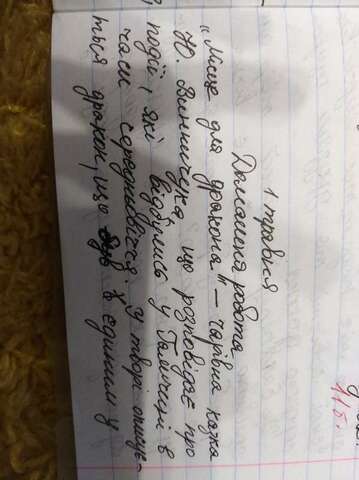 1 травня
Домашня робота
„Місце для дракона" – чарівна казка
Ю. Винничука, що розповідає про
події, які відбулись у Галичині в
часи середньвіччя. У творі описує-
ться дракон, що є єдиним у
11б.